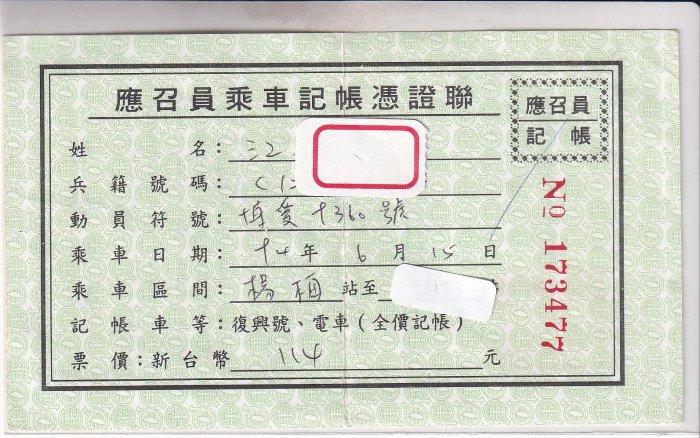 應召員乘車記帳憑證聯
應召員
記帳
姓名：江
兵籍號碼：
動員符號： 1360號
乘車日期：74年6月15日
乘車區間：楊梅站至
記帳車等：復興號、電車（全價記帳）
票價：新台幣114元
No 173477